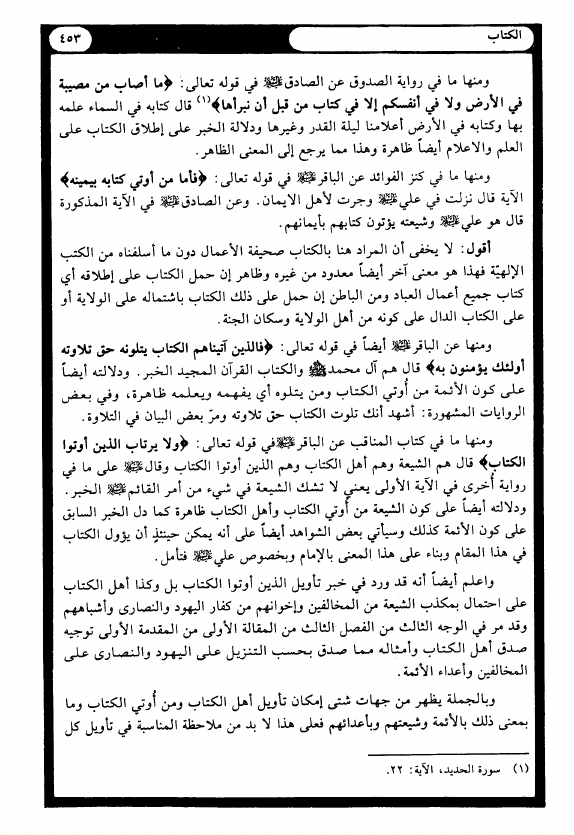 الكتاب
٤٥٣
ومنها ما في رواية الصدوق عن الصادق ﵇ في قوله تعالى: ﴿ما أصاب من مصيبة
في الأرض ولا في أنفسكم إلا في كتاب من قبل أن نبرأها﴾(١) قال كتابه في السماء علمه
بها وكتابه في الأرض أعلامنا ليلة القدر وغيرها ودلالة الخبر على إطلاق الكتاب على
العلم والاعلام أيضاً ظاهرة وهذا مما يرجع إلى المعنى الظاهر.
ومنها ما في كنز الفوائد عن الباقر ﵇ في قوله تعالى: ﴿فأما من أوتي كتابه بيمينه﴾
الآية قال نزلت في علي ﵇ وجرت لأهل الايمان. وعن الصادق ﵇ في الآية المذكورة
قال هو علي ﵇ وشيعته يؤتون كتابهم بأيمانهم.
أقول: لا يخفى أن المراد هنا بالكتاب صحيفة الأعمال دون ما أسلفناه من الكتب
الإلهيّة فهذا هو معنى آخر أيضاً معدود من غيره وظاهر إن حمل الكتاب على إطلاقه أي
كتاب جميع أعمال العباد ومن الباطن إن حمل على ذلك الكتاب باشتماله على الولاية أو
على الكتاب الدال على كونه من أهل الولاية وسكان الجنة.
ومنها عن الباقر ﵇ أيضاً في قوله تعالى: ﴿فالذين آتيناهم الكتاب يتلونه حق تلاوته
أولئك يؤمنون به﴾ قال هم آل محمد ﷺ والكتاب القرآن المجيد الخبر. ودلالته أيضاً
على كون الأئمة من أُوتي الكتاب ومن يتلوه أي يفهمه ويعلمه ظاهرة، وفي بعض
الروايات المشهورة: أشهد أنك تلوت الكتاب حق تلاوته ومرّ بعض البيان في التلاوة.
ومنها ما في كتاب المناقب عن الباقر ﵇ في قوله تعالى: ﴿ولا يرتاب الذين أوتوا
الكتاب﴾ قال هم الشيعة وهم أهل الكتاب وهم الذين أوتوا الكتاب وقال ﵇ على ما في
رواية أُخرى في الآية الأولى يعني لا تشك الشيعة في شيء من أمر القائم ﵇ الخبر.
ودلالته أيضاً على كون الشيعة من أُوتي الكتاب وأهل الكتاب ظاهرة كما دل الخبر السابق
على كون الأئمة كذلك وسيأتي بعض الشواهد أيضاً على أنه يمكن حينئذٍ أن يؤول الكتاب
في هذا المقام وبناء على هذا المعنى بالإمام وبخصوص علي ﵇ فتأمل.
واعلم أيضاً أنه قد ورد في خبر تأويل الذين أوتوا الكتاب بل وكذا أهل الكتاب
على احتمال بمكذب الشيعة من المخالفين وإخوانهم من كفار اليهود والنصارى وأشباههم
وقد مر في الوجه الثالث من الفصل الثالث من المقالة الأولى من المقدمة الأولى توجيه
صدق أهل الكتاب وأمثاله مما صدق بحسب التنزيل على اليهود والنصارى على
المخالفين وأعداء الأئمة.
وبالجملة يظهر من جهات شتى إمكان تأويل أهل الكتاب ومن أُوتي الكتاب وما
بمعنى ذلك بالأئمة وشيعتهم وبأعدائهم فعلى هذا لا بد من ملاحظة المناسبة في تأويل كل
(١) سورة الحديد، الآية: ٢٢.